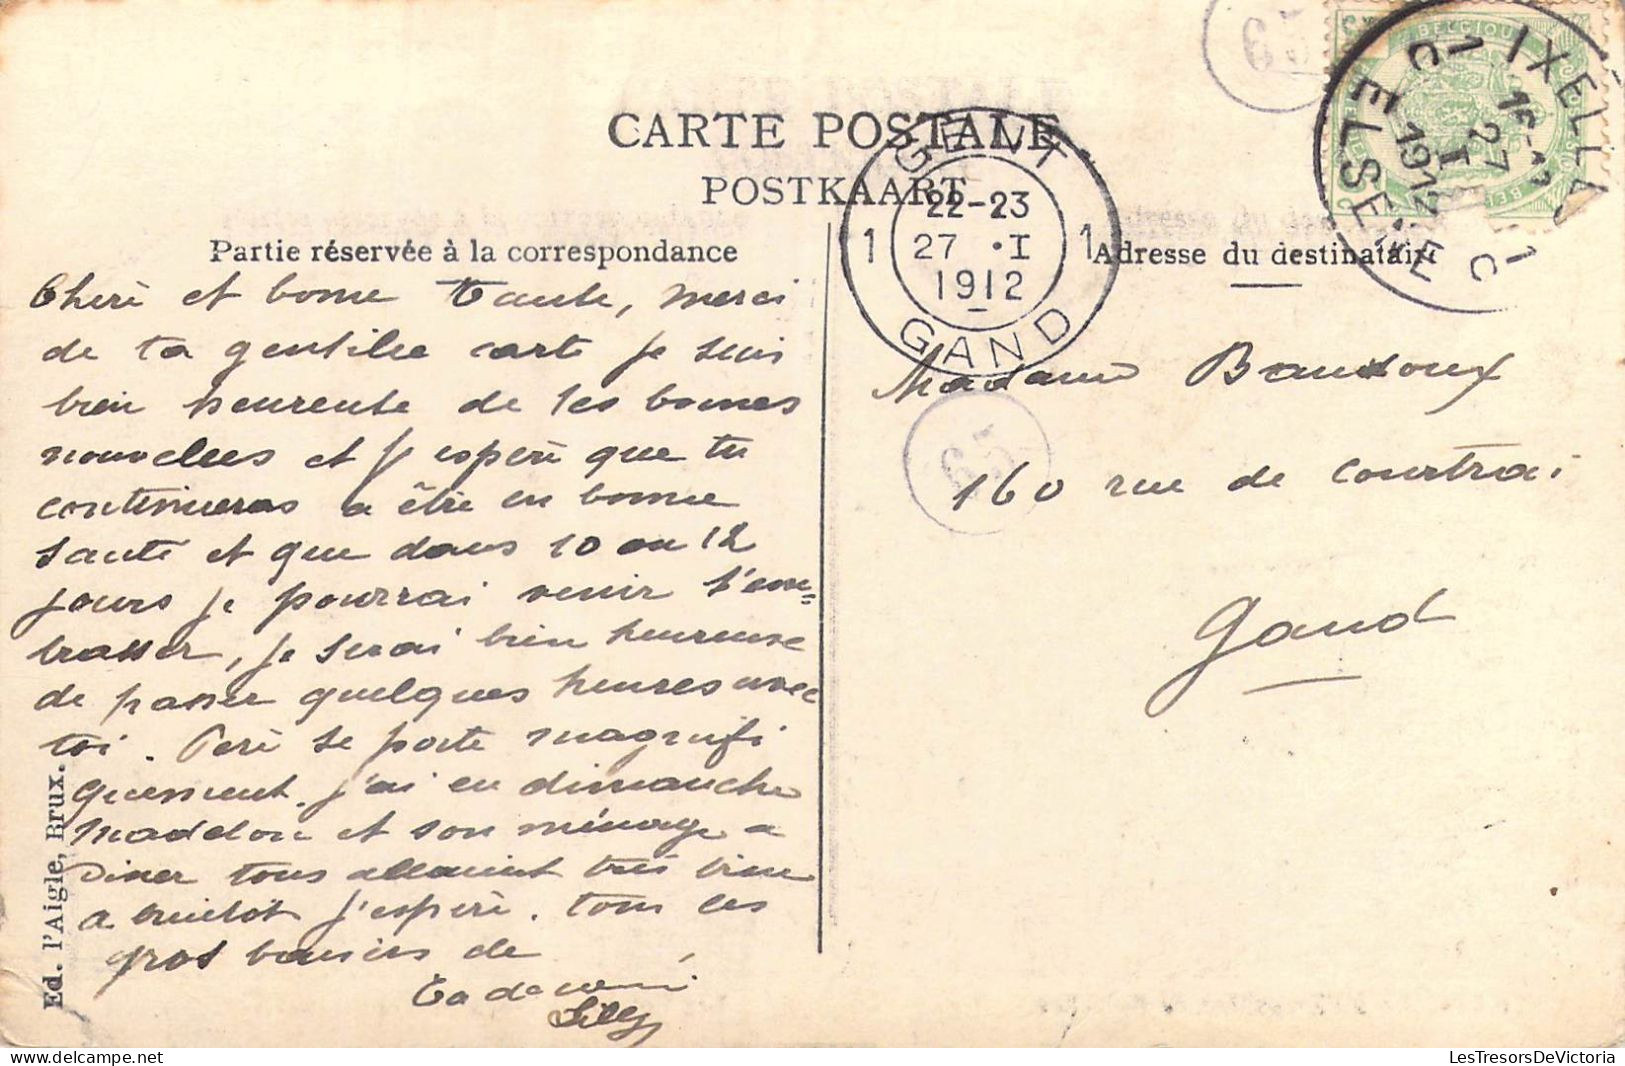 CARTE POSTALE
POSTKAART
Partie réservée à la correspondance
Adresse du destinataire
GENT
22-23
1 27 ·I 1
1912
GAND
IXELLES
27
I
1912
ELSENE
1 C
BELGIQUE
65
65
Cheri et bonne Tante, merci
de ta gentille carte je suis
bien heureuse de tes bonnes
nouvelles et j'espère que tu
continueras a être en bonne
santé et que dans 10 ou 12
jours je pourrai venir t'em=
brasser, je serai bien heureuse
de passer quelques heures avec
toi. Père se porte magnifi
quement. j'ai eu dimanche
Madelon et son ménage a
Diner tous allaient très bien
a bientôt j'espère. tous les
gros baisers de
Lilly
Madame Baudoux
160 rue de courtrai
Gand
Ed. l'Aigle, Brux.
LesTresorsDeVictoria